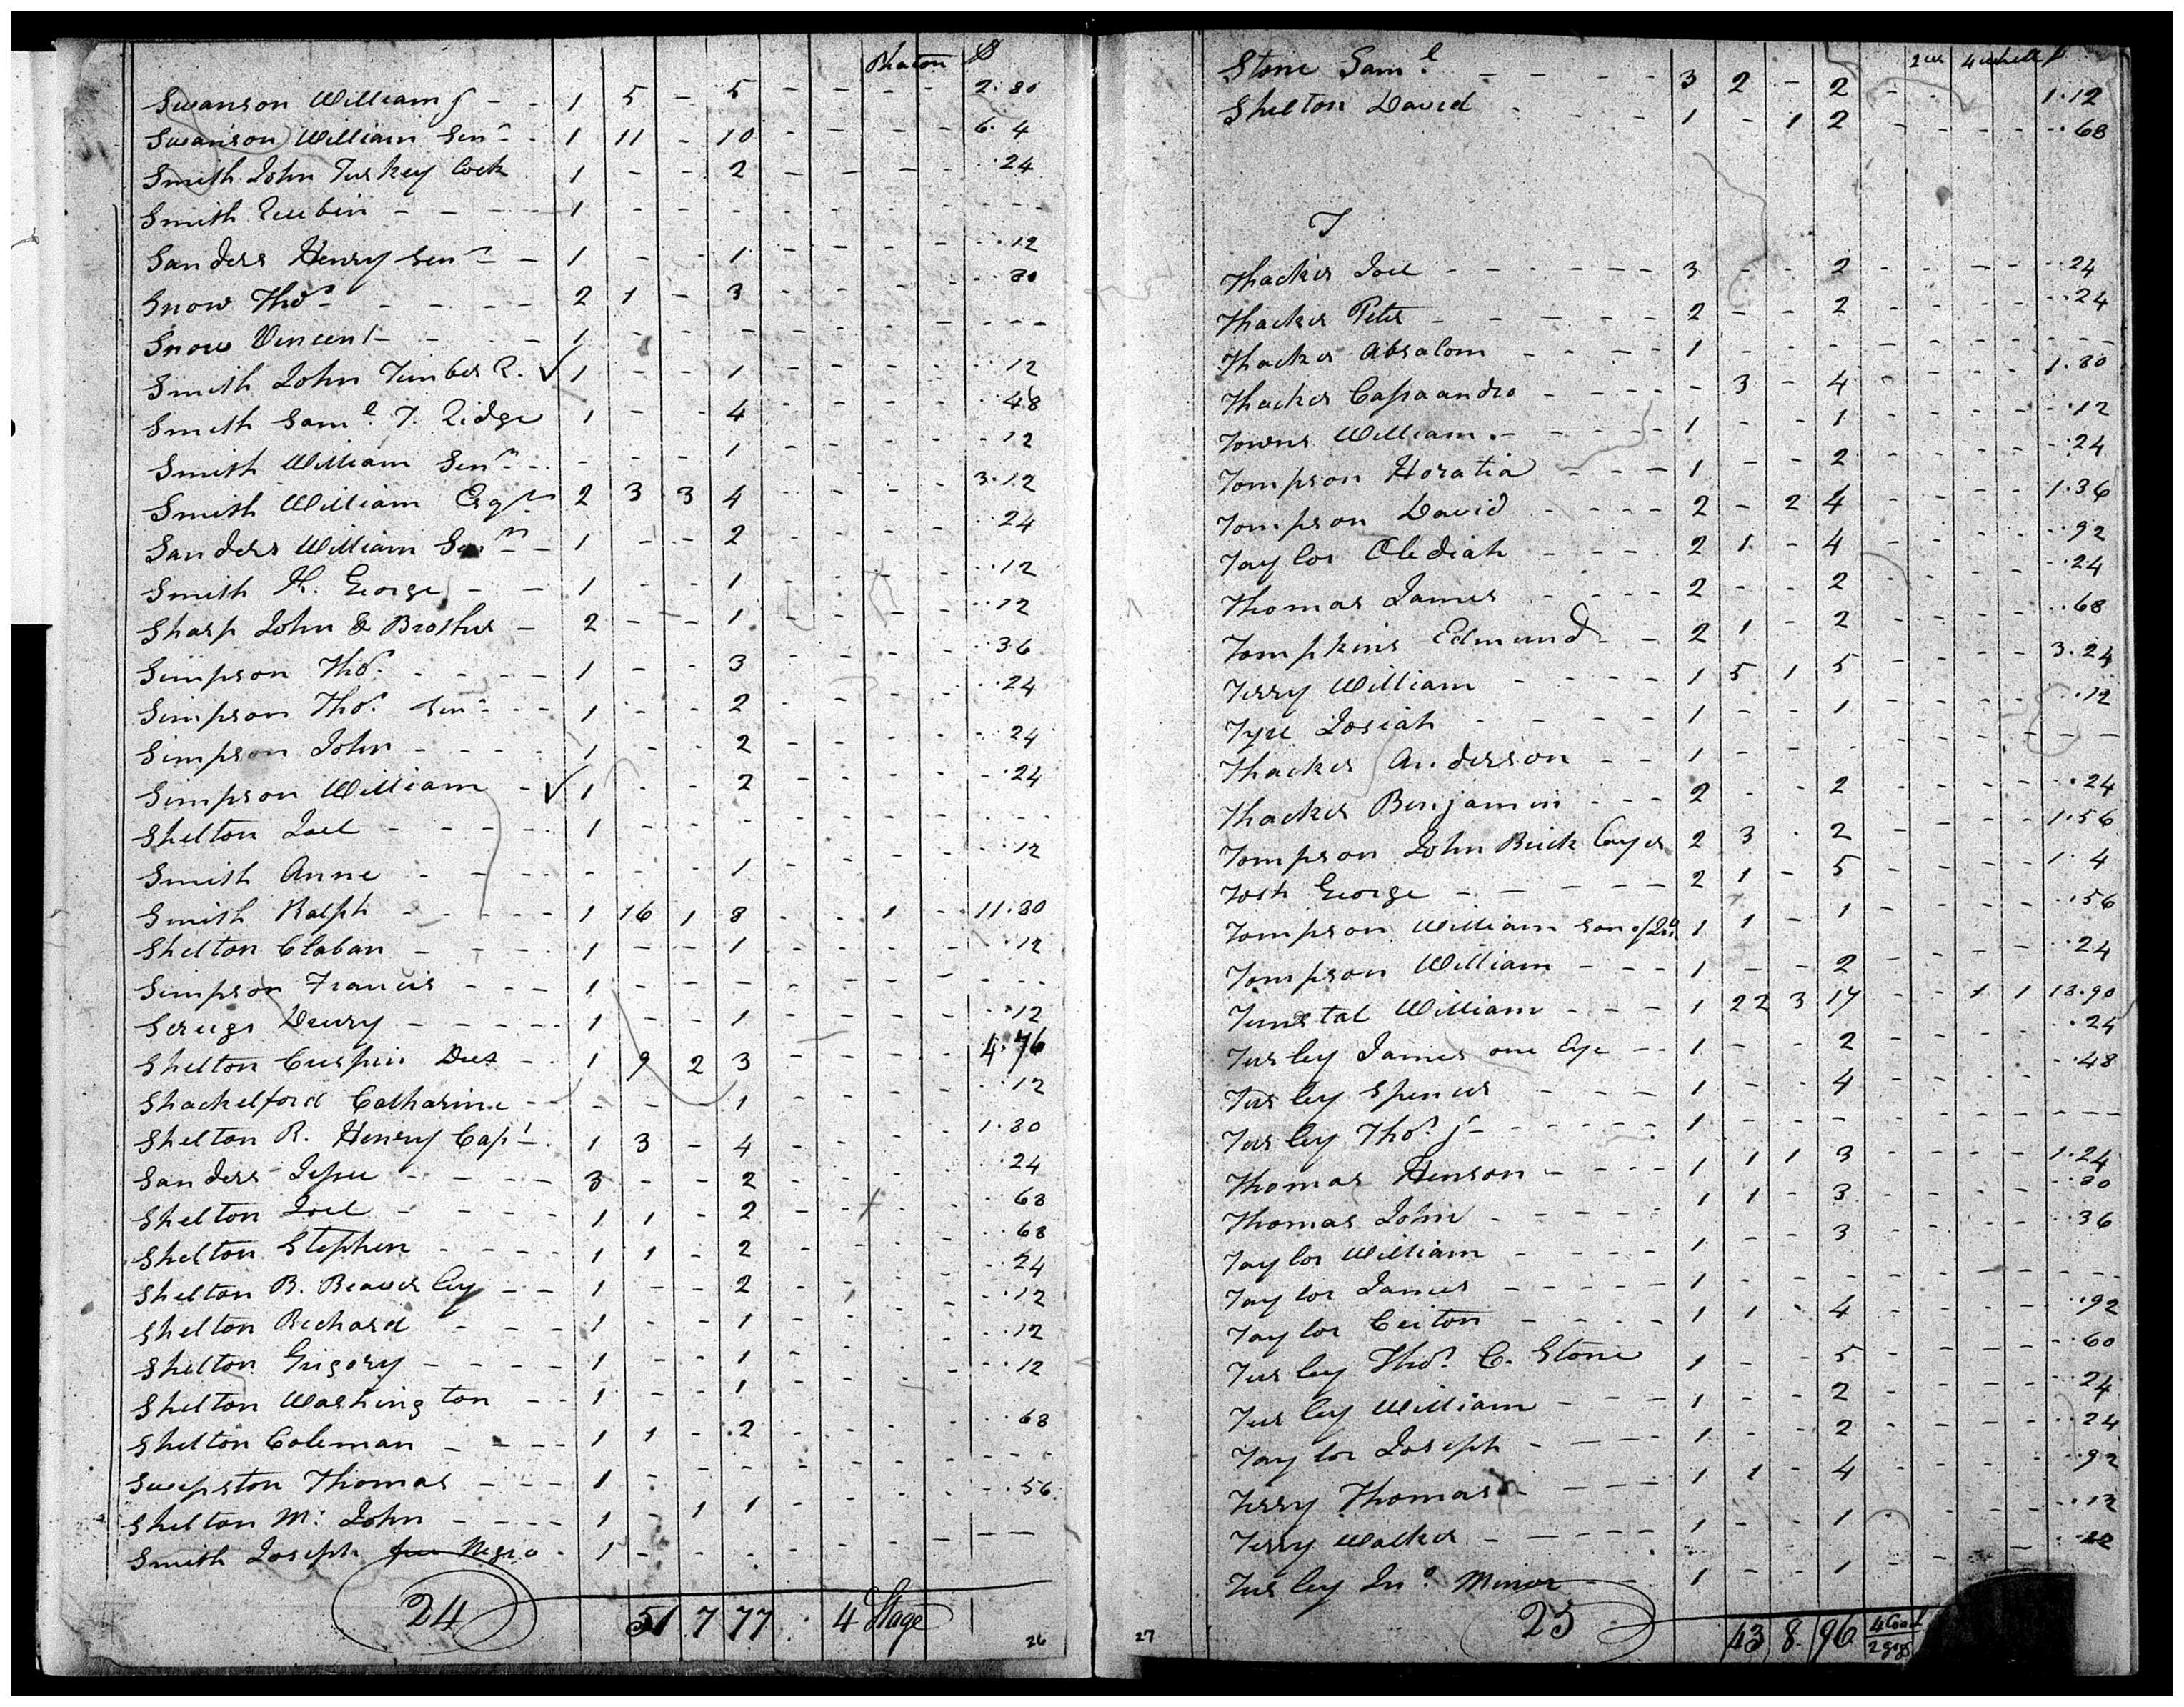 Phaton $
Swanson William J - - 1 5 - 5 - - - - 2.80
Swanson William Senr - 1 11 - 10 - - - - 6.4
Smith John Turkey Cock 1 - - 2 - - - - ..24
Smith Reubin - - - - 1 - - - - - - - - - -
Sanders Henry Senr - 1 - - 1 - - - - ..12
Snow Thos - - - - 2 1 - 3 - - - - 80
Snow Vincent - - - - 1 - - - - - - - - - -
Smith John Timber R. ✓ 1 - - 1 - - - - ..12
Smith Saml T. Ridge 1 - - 4 - - - - ..48
Smith William Senr - - - 1 - - - - ..12
Smith William Esqr 2 3 3 4 - - - - 3.12
Sanders William Senr - 1 - - 2 - - - - ..24
Smith H. George - - 1 - - 1 - - - - ..12
Sharp John & Brother - 2 - - 1 - - - - ..12
Simpson Thos. - - - - 1 - - 3 - - - - ..36
Simpson Thos. Senr - - 1 - - 2 - - - - ..24
Simpson John - - - - 1 - - 2 - - - - ..24
Simpson William - ✓ 1 - - 2 - - - - ..24
Shelton Joel - - - - 1 - - - - - - - - - -
Smith Anne - - - - - - - 1 - - - - ..12
Smith Ralph - - - - 1 16 1 8 - - 1 - 11.80
Shelton Claban - - - - 1 - - 1 - - - - ..12
Simpson Francis - - - 1 - - - - - - - - - -
Scrugs Drury - - - - 1 - - 1 - - - - ..12
Shelton Crispin Dec - 1 9 2 3 - - - - 4.76
Shackelford Catharine - - - - 1 - - - - ..12
Shelton R. Henry Capt - 1 3 - 4 - - - - 1.80
Sanders Jesse - - - - 3 - - 2 - - - - ..24
Shelton Joel - - - - 1 1 - 2 - - - - ..68
Shelton Stephen - - - - 1 1 - 2 - - - - ..68
Shelton B. Beaverley - - 1 - - 2 - - - - ..24
Shelton Richard - - - 1 - - 1 - - - - ..12
Shelton Grigory - - - - 1 - - 1 - - - - ..12
Shelton Washington - - 1 - - 1 - - - - ..12
Shelton Coleman - - - - 1 1 - 2 - - - - ..68
Swepston Thomas - - - 1 - - - - - - - - - -
Shelton M. John - - - - 1 - 1 1 - - - - ..56
Smith Joseph free Negro - 1 - - - - - - - - -
24 51 7 77 4 Stage
26
2 w 4 wheell $
Stone Saml - - - - 3 2 - 2 - - - - 1.12
Shelton David - - - - 1 - 1 2 - - - - ..68
T
Thacker Joel - - - - 3 - - 2 - - - - ..24
Thacker Peter - - - - 2 - - 2 - - - - ..24
Thacker Absalom - - - - 1 - - - - - - - - - -
Thacker Cassaandro - - - - - 3 - 4 - - - - 1.80
Towns William - - - - 1 - - 1 - - - - ..12
Tompson Horatia - - - 1 - - 2 - - - - ..24
Tompson David - - - - 2 - 2 4 - - - - 1.36
Taylor Obediah - - - - 2 1 - 4 - - - - ..92
Thomas James - - - - 2 - - 2 - - - - ..24
Tompkins Edmund - - 2 1 - 2 - - - - ..68
Terry William - - - - 1 5 1 5 - - - - 3.24
Tyre Josiah - - - - 1 - - 1 - - - - ..12
Thacker Anderson - - 1 - - - - - - - - - -
Thacker Benjamin - - - 2 - - 2 - - - - ..24
Tompson John Brick Layer 2 3 - 2 - - - - 1.56
Tosh George - - - - 2 1 - 5 - - - - 1.4
Tompson William son of 1 1 - 1 - - - - ..56
Tompson William - - - 1 - - 2 - - - - ..24
Tunstal William - - - 1 22 3 14 - - 1 1 18.90
Tursley James one Eye - - 1 - - 2 - - - - ..24
Tursley Spencer - - - 1 - - 4 - - - - ..48
Tursley Thos. J - - - - 1 - - - - - - - - - -
Thomas Henson - - - - 1 1 1 3 - - - - 1.24
Thomas John - - - - 1 1 - 3 - - - - ..80
Taylor William - - - - 1 - - 3 - - - - ..36
Taylor James - - - - 1 - - - - - - - - - -
Taylor Ceiton - - - - 1 1 - 4 - - - - ..92
Tursley Thos. C. Stone 1 - - 5 - - - - ..60
Tursley William - - - 1 - - 2 - - - - ..24
Taylor Joseph - - - - 1 - - 2 - - - - ..24
Terry Thomas - - - - 1 1 - 4 - - - - ..92
Terry Walker - - - - 1 - - 1 - - - - ..12
Tursley Jno. Minor - - 1 - - 1 - - - - ..12
23 43 8 96 4 Coach
2 gigs
27